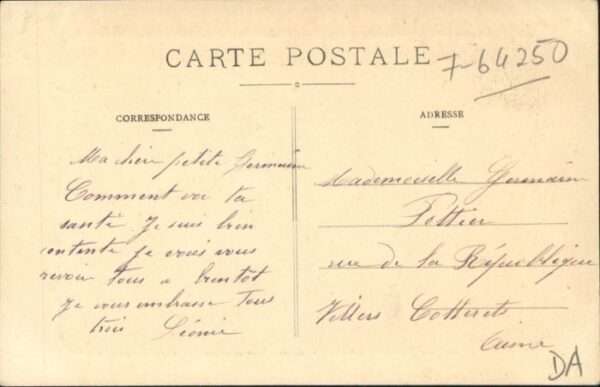 CARTE POSTALE
7-64250
CORRESPONDANCE
Ma chère petite Germaine
Comment va ta
santé Je suis bien
contente je vais vous
revoir tous a bientôt
Je vous embrasse tous
trois Léonie
ADRESSE
Mademoiselle Germaine
Pottier
rue de la République
Villers Cotterets
Aisne
DA